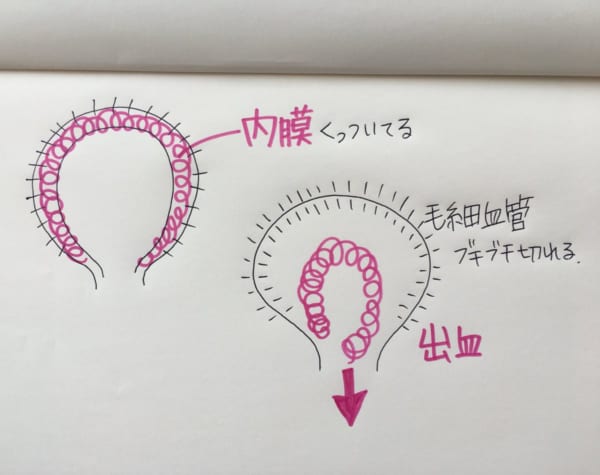 内膜 くっついてる
毛細血管
ブチブチ切れる.
出血